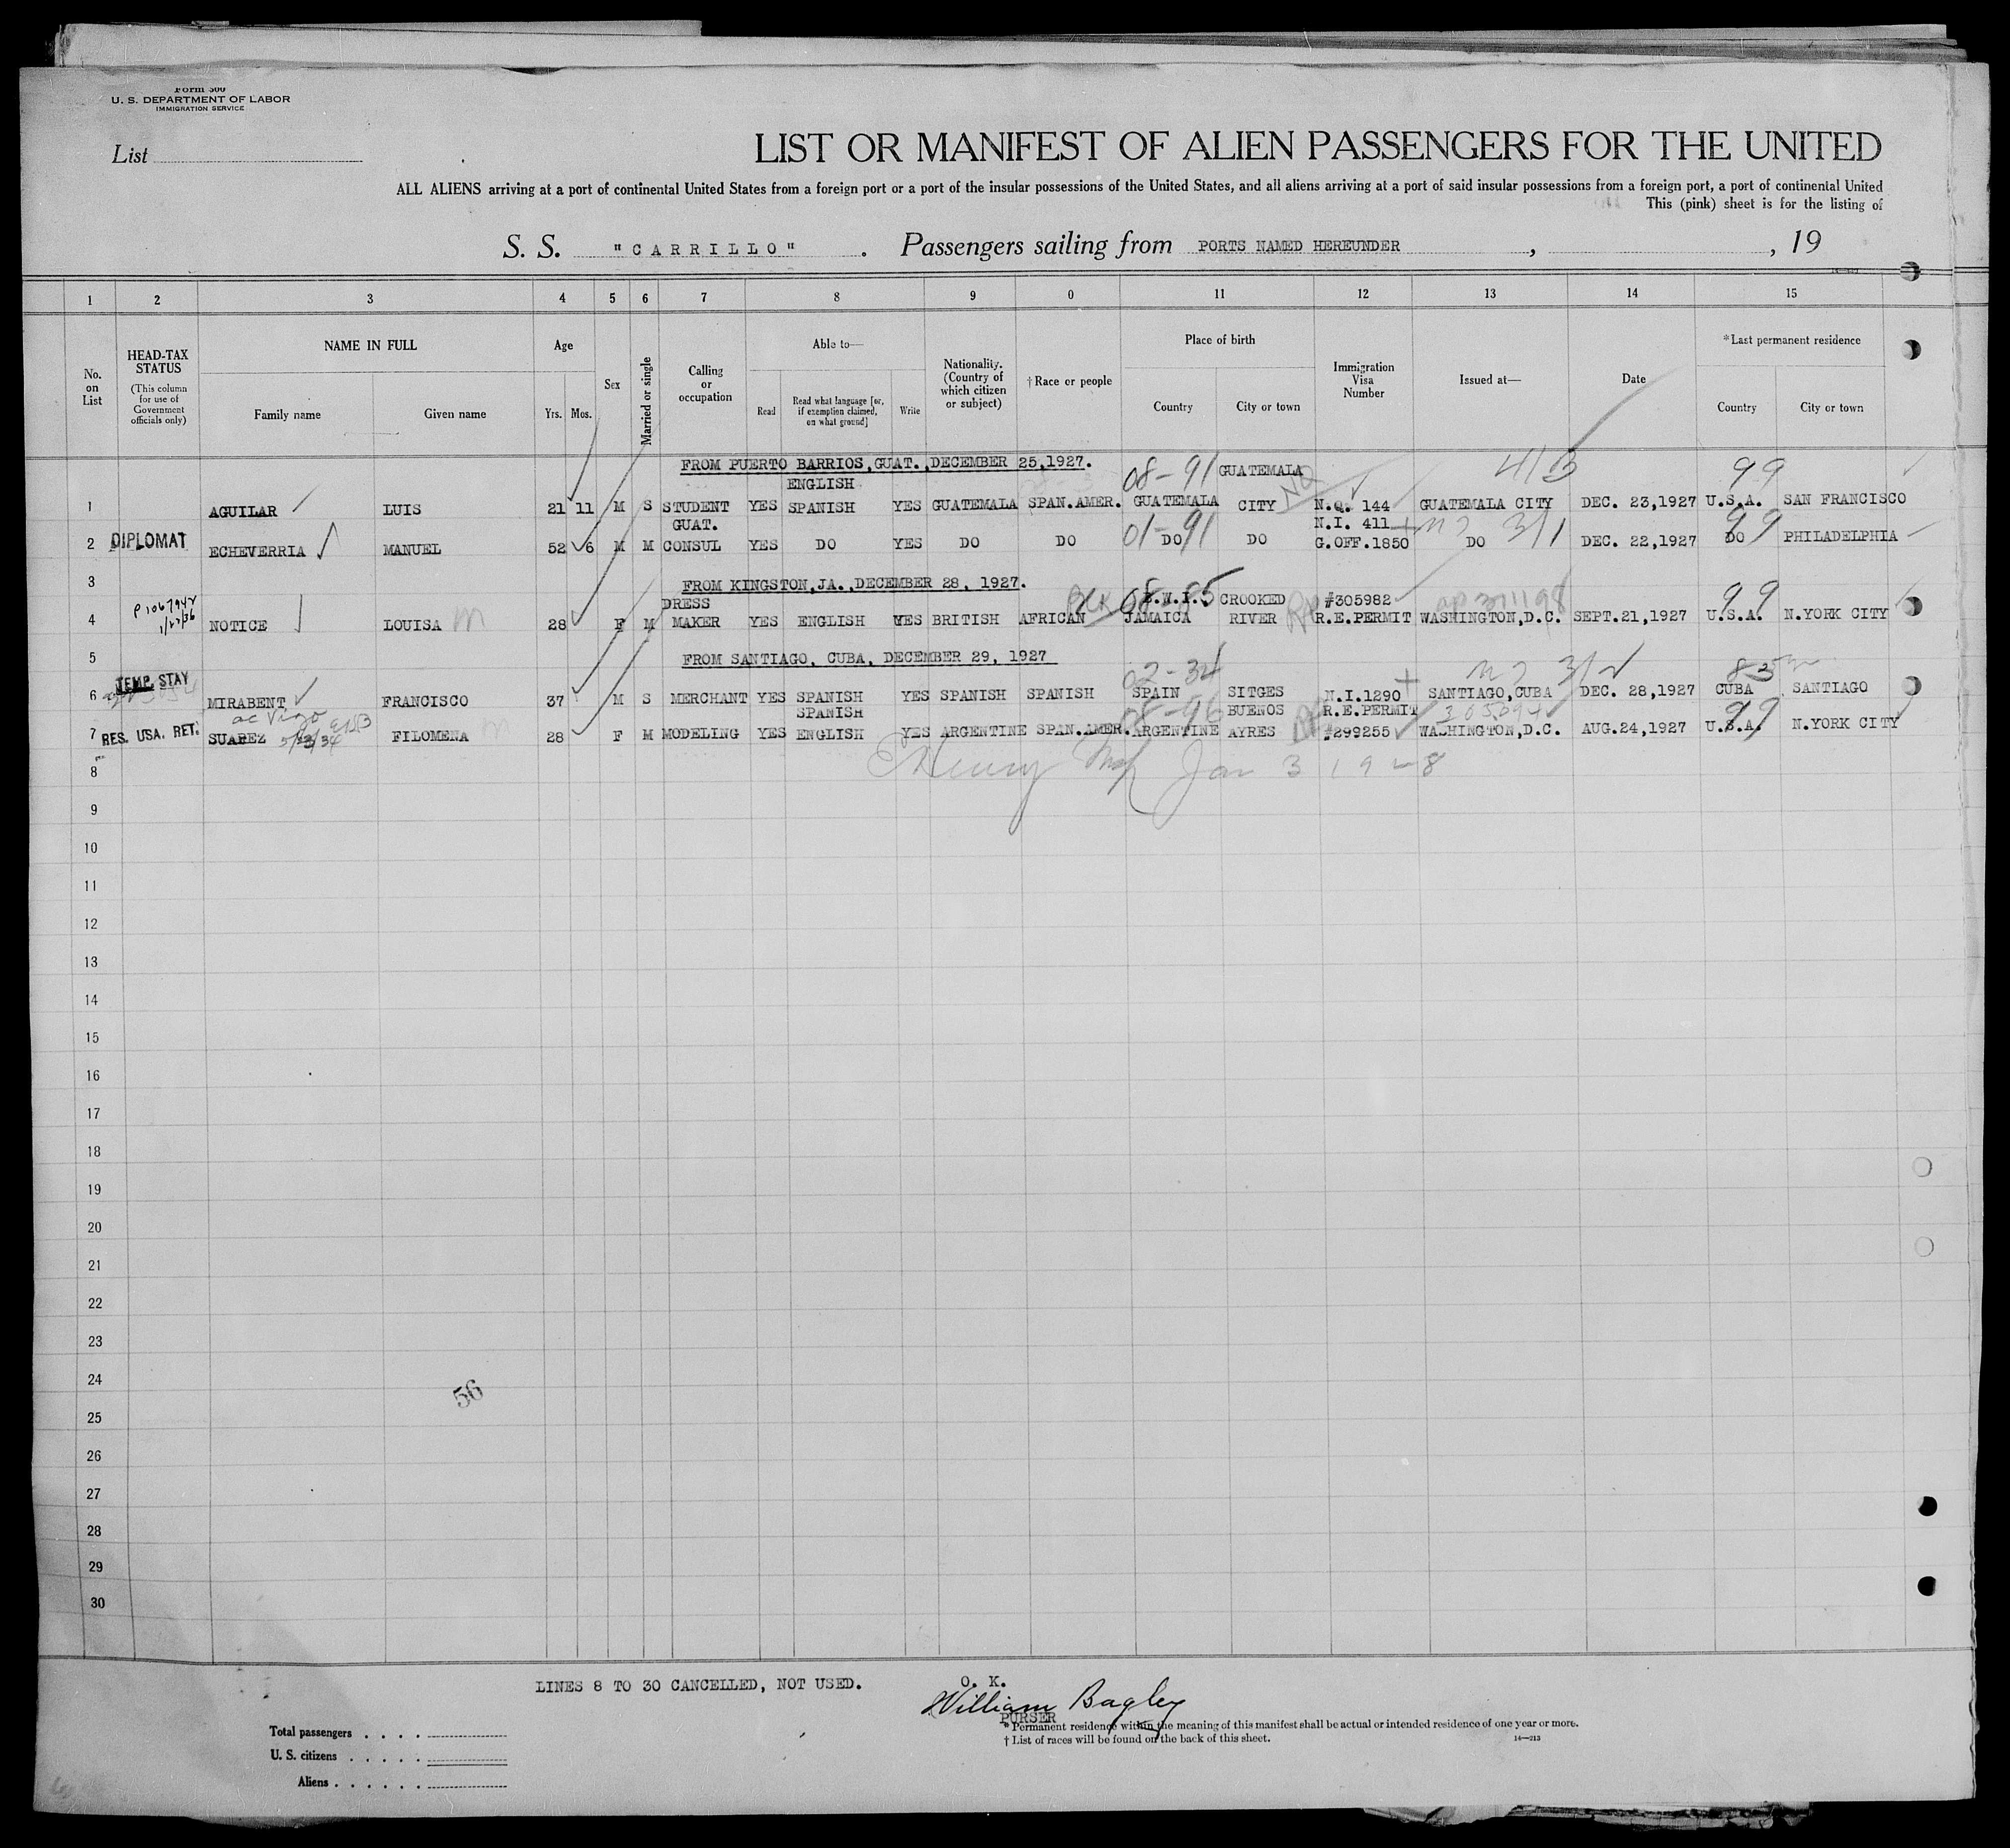 Form 500
U. S. DEPARTMENT OF LABOR
IMMIGRATION SERVICE
List
LIST OR MANIFEST OF ALIEN PASSENGERS FOR THE UNITED
ALL ALIENS arriving at a port of continental United States from a foreign port or a port of the insular possessions of the United States, and all aliens arriving at a port of said insular possessions from a foreign port, a port of continental United
This (pink) sheet is for the listing of
S. S. "CARRILLO" . Passengers sailing from PORTS NAMED HEREUNDER , , 19
1 2 3 4 5 6 7 8 9 0 11 12 13 14 15
No. on List
HEAD-TAX STATUS (This column for use of Government officials only)
NAME IN FULL
Family name Given name
Age
Yrs. Mos.
Sex
Married or single
Calling or occupation
Able to—
Read Read what language [or, if exemption claimed, on what ground] Write
Nationality. (Country of which citizen or subject)
†Race or people
Place of birth
Country City or town
Immigration Visa Number
Issued at—
Date
*Last permanent residence
Country City or town
FROM PUERTO BARRIOS,GUAT.,DECEMBER 25,1927. 08-91 GUATEMALA 99
ENGLISH
1 AGUILAR LUIS 21 11 M S STUDENT YES SPANISH YES GUATEMALA SPAN.AMER. GUATEMALA CITY NQ N.Q. 144 GUATEMALA CITY DEC. 23,1927 U.S.A. SAN FRANCISCO
GUAT. 01-91 N.I. 411 3/1 99
2 DIPLOMAT ECHEVERRIA MANUEL 52 6 M M CONSUL YES DO YES DO DO DO DO G.OFF.1850 DO DEC. 22,1927 DO PHILADELPHIA
3 FROM KINGSTON,JA.,DECEMBER 28, 1927.
P 1067942 1/27/36 DRESS 08-85 B.W.I. CROOKED #305982 99
4 NOTICE LOUISA M 28 F M MAKER YES ENGLISH YES BRITISH AFRICAN JAMAICA RIVER R.E.PERMIT WASHINGTON,D.C. SEPT.21,1927 U.S.A. N.YORK CITY
5 FROM SANTIAGO, CUBA, DECEMBER 29, 1927
TEMP. STAY 02-34
6 MIRABENT FRANCISCO 37 M S MERCHANT YES SPANISH YES SPANISH SPANISH SPAIN SITGES N.I.1290 SANTIAGO,CUBA DEC. 28,1927 CUBA SANTIAGO
SPANISH 08-96 BUENOS R.E.PERMIT 99
7 RES. USA. RET. SUAREZ FILOMENA 28 F M MODELING YES ENGLISH YES ARGENTINE SPAN.AMER. ARGENTINE AYRES #299255 WASHINGTON,D.C. AUG.24,1927 U.S.A. N.YORK CITY
8 Jan 3 1928
9
10
11
12
13
14
15
16
17
18
19
20
21
22
23
24
56
25
26
27
28
29
30
LINES 8 TO 30 CANCELLED, NOT USED. O. K.
William Bagley
PURSER
Total passengers
U. S. citizens
Aliens
* Permanent residence within the meaning of this manifest shall be actual or intended residence of one year or more.
† List of races will be found on the back of this sheet. 14—213